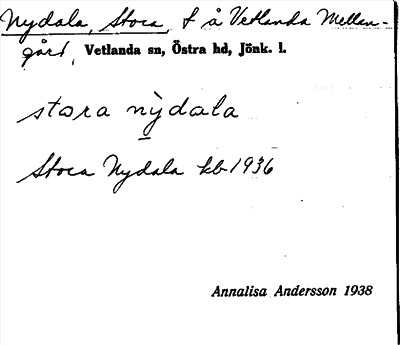 Nydala, Stora, t å Vetlanda Mellan-
gård, Vetlanda sn, Östra hd, Jönk. l.
stora nỳdala
Stora Nydala kb 1936
Annalisa Andersson 1938